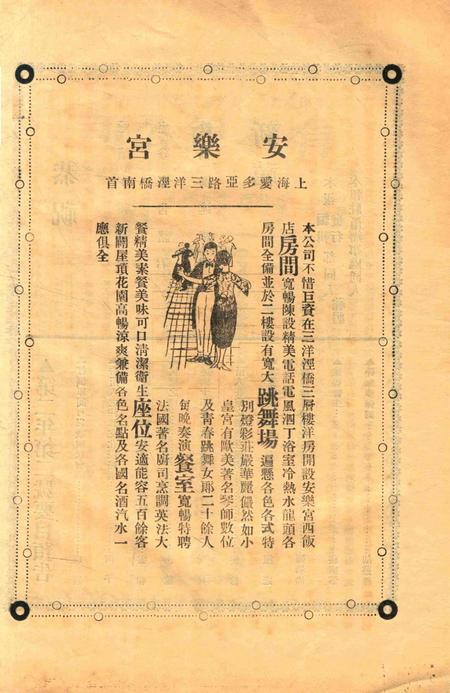 安樂宮
上海愛多亞路三洋涇橋南首
本公司不惜巨資在三洋涇橋三層樓洋房開設安樂宮西飯
店房間寬暢陳設精美電話電風泗丁浴室冷熱水龍頭各
房間全備並於二樓設有寬大跳舞場遍懸各色各式特
別燈彩莊嚴華麗儼然如小
皇宮有歐美著名琴師數位
及靑春跳舞女郎二十餘人
每晚奏演餐室寬暢特聘
法國著名廚司烹調英法大
餐精美素餐美味可口淸潔衛生座位安適能容五百餘客
新闢屋頂花園高暢涼爽兼備各色名點及各國名酒汽水一
應俱全